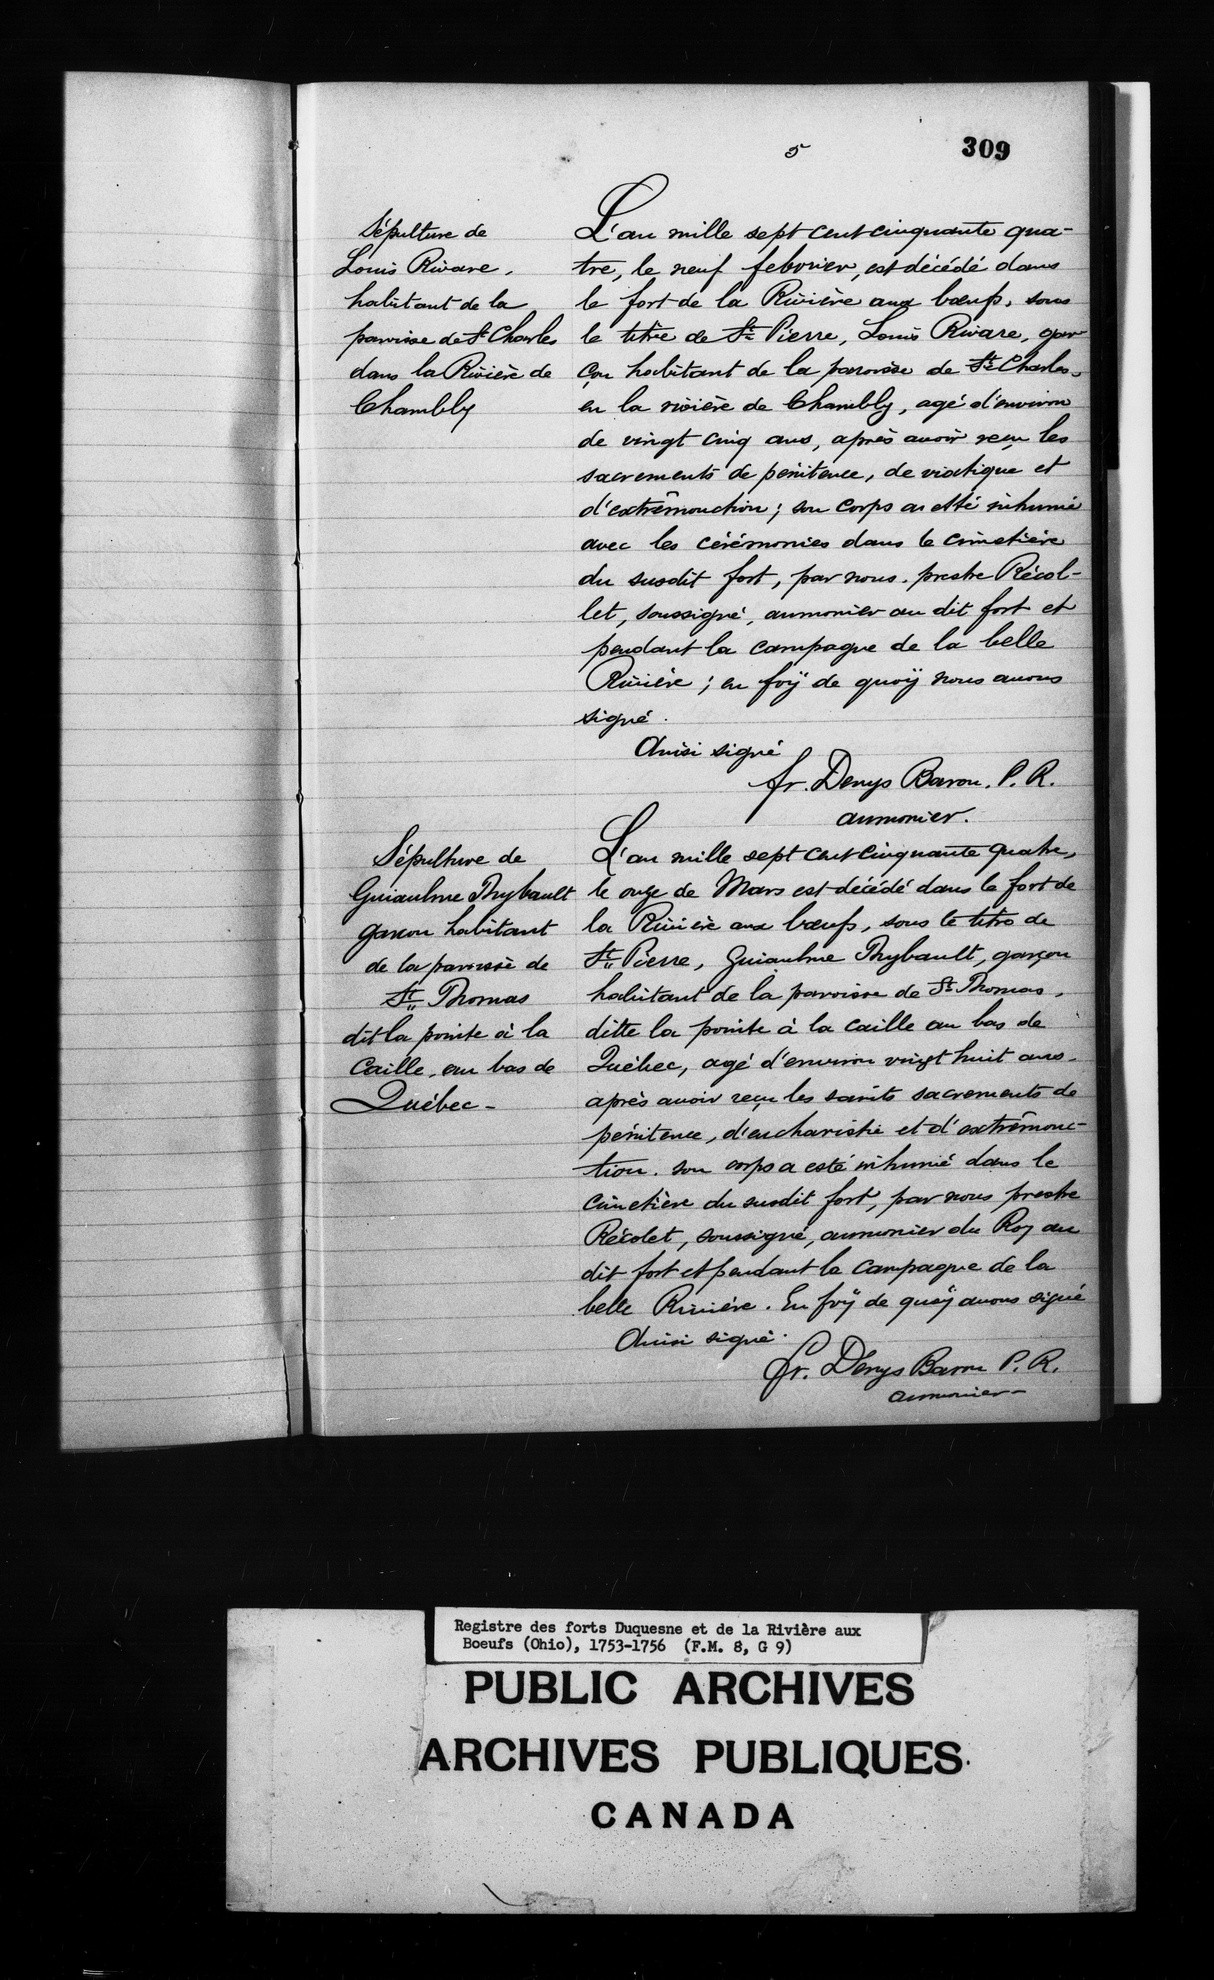 5
309
Sépulture de
Louis Rivare.
habitant de la
paroisse de St Charles
dans la Rivière de
Chambly
L'an mille sept cent cinquante qua-
tre, le neuf febvrier, est décédé dans
le fort de la Rivière aux bœufs, sous
le titre de St Pierre, Louis Rivare, gar
çon habitant de la paroisse de St Charles.
en la rivière de Chambly, agé d'environ
de vingt cinq ans, après avoir reçu les
sacrements de pénitence, de viatique et
d'extrêmonction; son corps a esté inhumé
avec les cérémonies dans le cimetière
du susdit fort, par nous. prestre Récol-
let, soussigné, aumonier au dit fort et
pendant la campagne de la belle
Rivière; en foÿ de quoÿ nous avons
signé.
Ainsi signé
fr. Denys Baron. P. R.
aumonier.
Sépulture de
Guiaulme Thybault
garçon habitant
de la paroisse de
St Thomas
dit la pointe à la
Caille, au bas de
Québec-
L'an mille sept cent cinquante quatre,
le onze de Mars est décédé dans le fort de
la Rivière aux bœufs, sous le titre de
St Pierre, Guiaulme Thybault, garçon
habitant de la paroisse de St Thomas,
ditte la pointe à la caille au bas de
Québec, agé d'environ vingt huit ans.
après avoir reçu les saints sacrements de
pénitence, d'eucharistie et d'extrêmonc-
tion. son corps a esté inhumé dans le
cimetière du susdit fort, par nous prestre
Récolet, soussigné, aumonier du Roy au
dit fort et pendant la campagne de la
belle Rivière. En foÿ de quoÿ avons signé
Ainsi signé.
fr. Denys Baron P. R.
aumonier-
Registre des forts Duquesne et de la Rivière aux
Boeufs (Ohio), 1753-1756 (F.M. 8, G 9)
PUBLIC ARCHIVES
ARCHIVES PUBLIQUES
CANADA